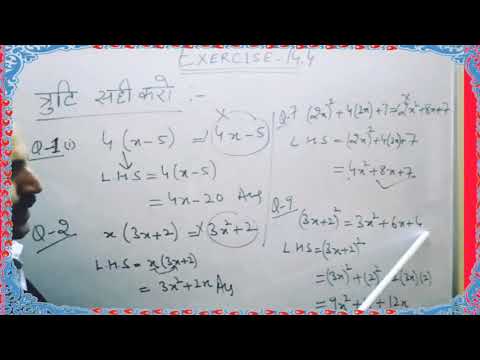 EXERCISE-14.4
त्रुटि सही करो :-
Q-1(i) 4(x-5) = 4x-5
LHS = 4(x-5)
= 4x-20 Ans
Q-2 x(3x+2) = 3x²+2
LHS = x(3x+2)
= 3x²+2x Ans
Q-7 (2x)²+4(2x)+7 = 2x²+8x+7
LHS = (2x)²+4(2x)+7
= 4x²+8x+7
Q-9 (3x+2)² = 3x²+6x+4
LHS = (3x+2)²
= (3x)²+(2)² 2(3x)(2)
= 9x²+ + 12x